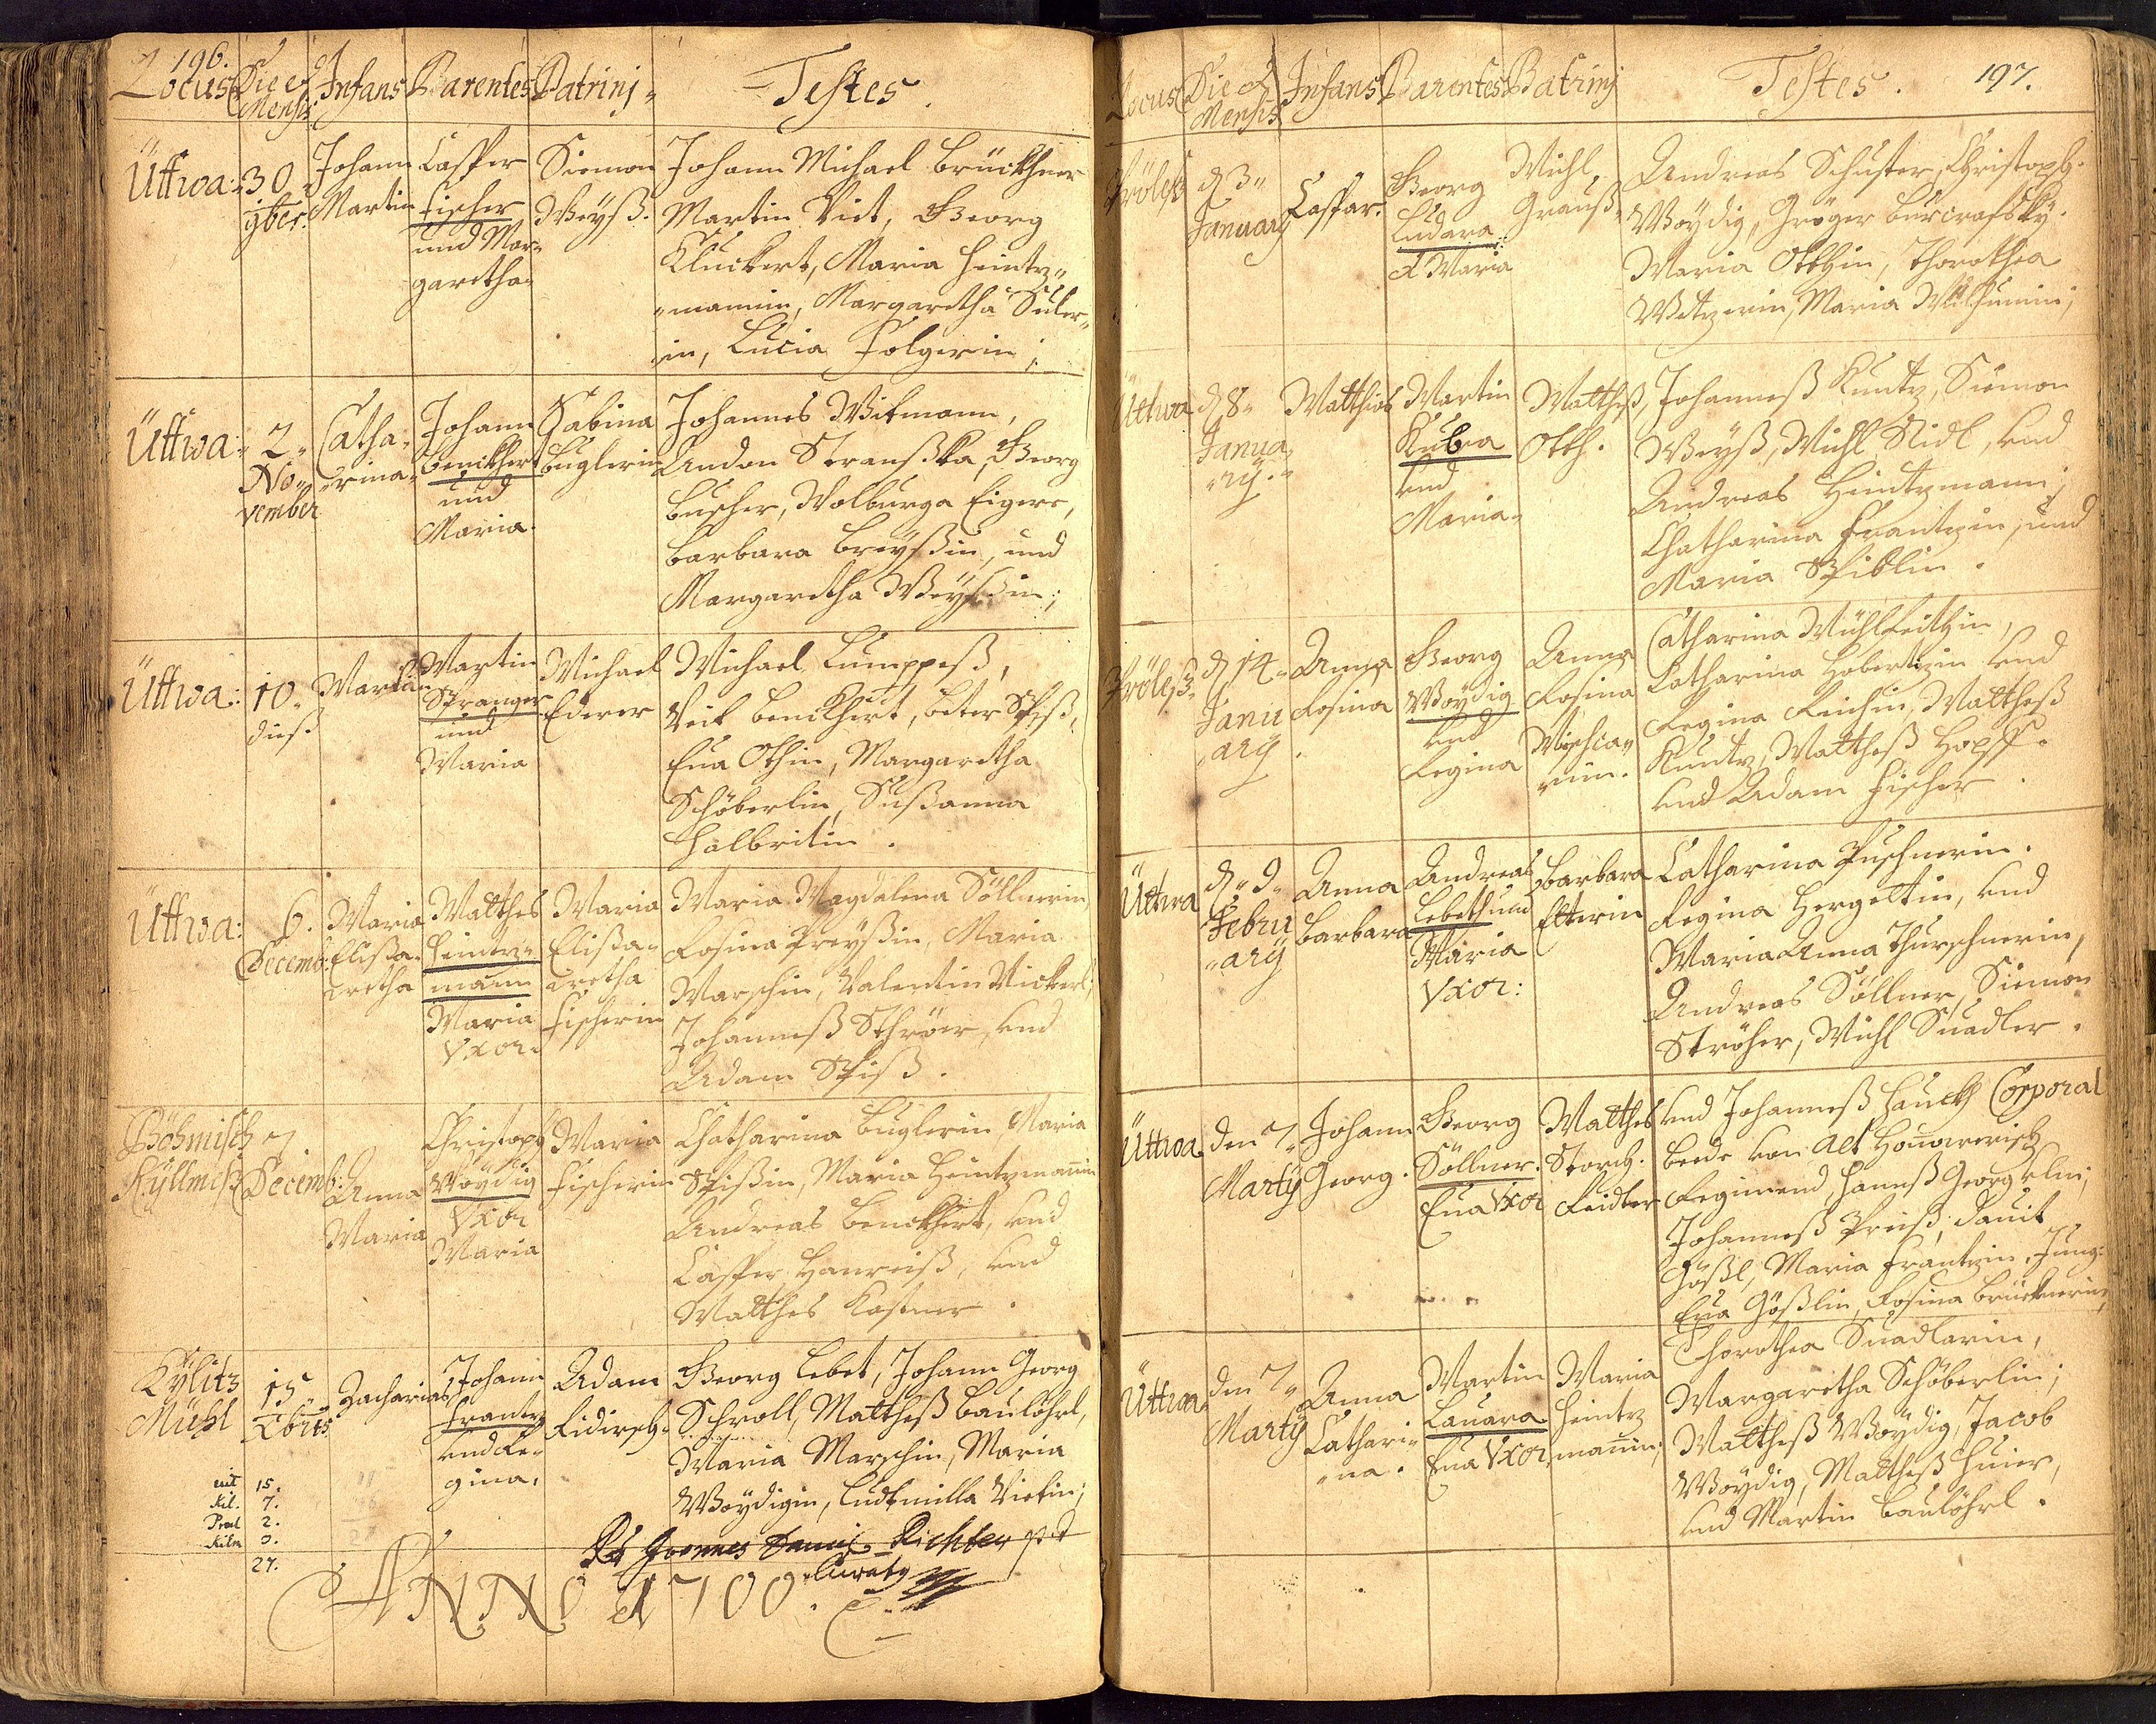 196.
Locus Die et Mensis Infans Parentes Patrini Testes.
Üttwa: 30 9ber.
Johann Martin
Casper
Fischer
und Mar-
garetha
Siemon
Weyß.
Johann Michael Brückhner
Martin Viet, Georg
Kluckert, Maria Heintz-
mannin, Margaretha Süler-
in, Lucia Folgerin;
Üttwa: 2
No-
vember
Catha-
rina
Johann
Benickhert
und
Maria.
Sabina
Buglerin
Johannes Witmann,
Andon Stranßka, Georg
Buscher, Wolburga Eigers,
Barbara Breyßin, und
Margaretha Weyßin;
Üttwa: 10.
dieß
Maria
Martin
Spranger
und
Maria
Michael
Ederer
Michael Lumppeß,
Veit Benickhert, Peter Spiß,
Eua Othin, Margaretha
Schöberlin, Sußanna
Halbritin.
Üttwa: 6.
Decemb:
Maria
Elißa-
bretha
Matthes
Heintz-
mann
Maria
Vxor.
Maria
Elißa-
bretha
Fischerin
Maria Magdalena Söllnerin,
Rosina Preyßin, Maria
Marschin, Valentin Nickerl,
Johanneß Schröer, und
Adam Spiß.
Böhmisch
Kyllmeß
7
Decemb:
Anna
Maria
Christoph
Woydig
Vxor
Maria
Maria
Fischerin
Chatharina Buglerin, Maria
Spißin, Maria Heintzmannin
Andreas Benickhert, und
Casper Hanreiß, und
Matthes Kostner.
Kylitz
Mühl
15
Xbris
Zacharias
Johann
Frantz
und Re-
gina.
Adam
Ridirsch.
Georg Lebet, Johann Georg
Schroll, Mattheß Baulöhrl,
Maria Marschin, Maria
Woydigin, Ludtmilla Vietin;
eut 15.
Kil. 7.
Prol 2.
Kilm 3.
27.
Joannes Richter pt
Curaty
ANNO 1700.
197.
Locus Die et Mensis Infans Parentes Patrini Testes.
Pröleß
d 3
January
Caspar.
Georg
Ludara
et Maria
Michl
Grauß
Andreas Schuster, Christoph
Woydig, Gröger Burcrafsky.
Maria Otthin, Thorothea
Metzerin, Maria
Üttwa d 8
Janua
ry.
Matthias
Martin
Kuba
und
Maria
Mattheß
Otth.
Johanneß Kuntz, Siemon
Weyß, Michl Nidl, und
Andreas Heintzmann;
Chatharina Frantzin, und
Maria Spiblin.
Pröleß d 14
Janu
ary.
Anna
Rosina
Georg
Woydig
und
Regina
Anna
Rosina
Catharina Mühlseithin,
Catharina Hobertzin und
Regina Reichin, Mattheß
Kuntz, Mattheß Hopff.
und Adam Fischer.
Üttwa d 9
Febru
ary
Anna
Barbara
Andreas
Lebeth und
Maria
Vxor:
Barbara
Etterin
Catharina Puschnerin.
Regina Hergeltin, und
Maria Anna Thurschnerin,
Andreas Söllner, Siemon
Ströher, Michl Suadler.
Üttwa den 7
Marty
Johann
Georg.
Georg
Söllner.
Eua Vxor
Matthes
Storch.
Reidter
und Johanneß Hauckh Corporal
beede von Alt Hannoverisch
Regimend, Hanneß Georg
Johanneß Preiß, Dauit
Gößl, Maria Frantzin, Jung:
Eua Gößlin, Rosina Brücknerin,
Üttwa den 7
Marty
Anna
Cathari-
na.
Martin
Lauara
Eua Vxor
Maria
Heintz
mannin;
Thorothea Suadlarin,
Margaretha Schöberlin;
Mattheß Woydig, Jacob
Woydig, Mattheß Huier,
und Martin Baulöhrl.